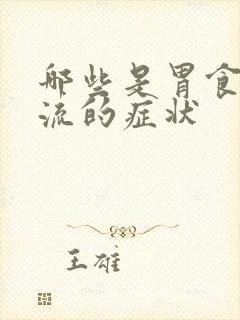 那些是胃食
流的症状
王雄